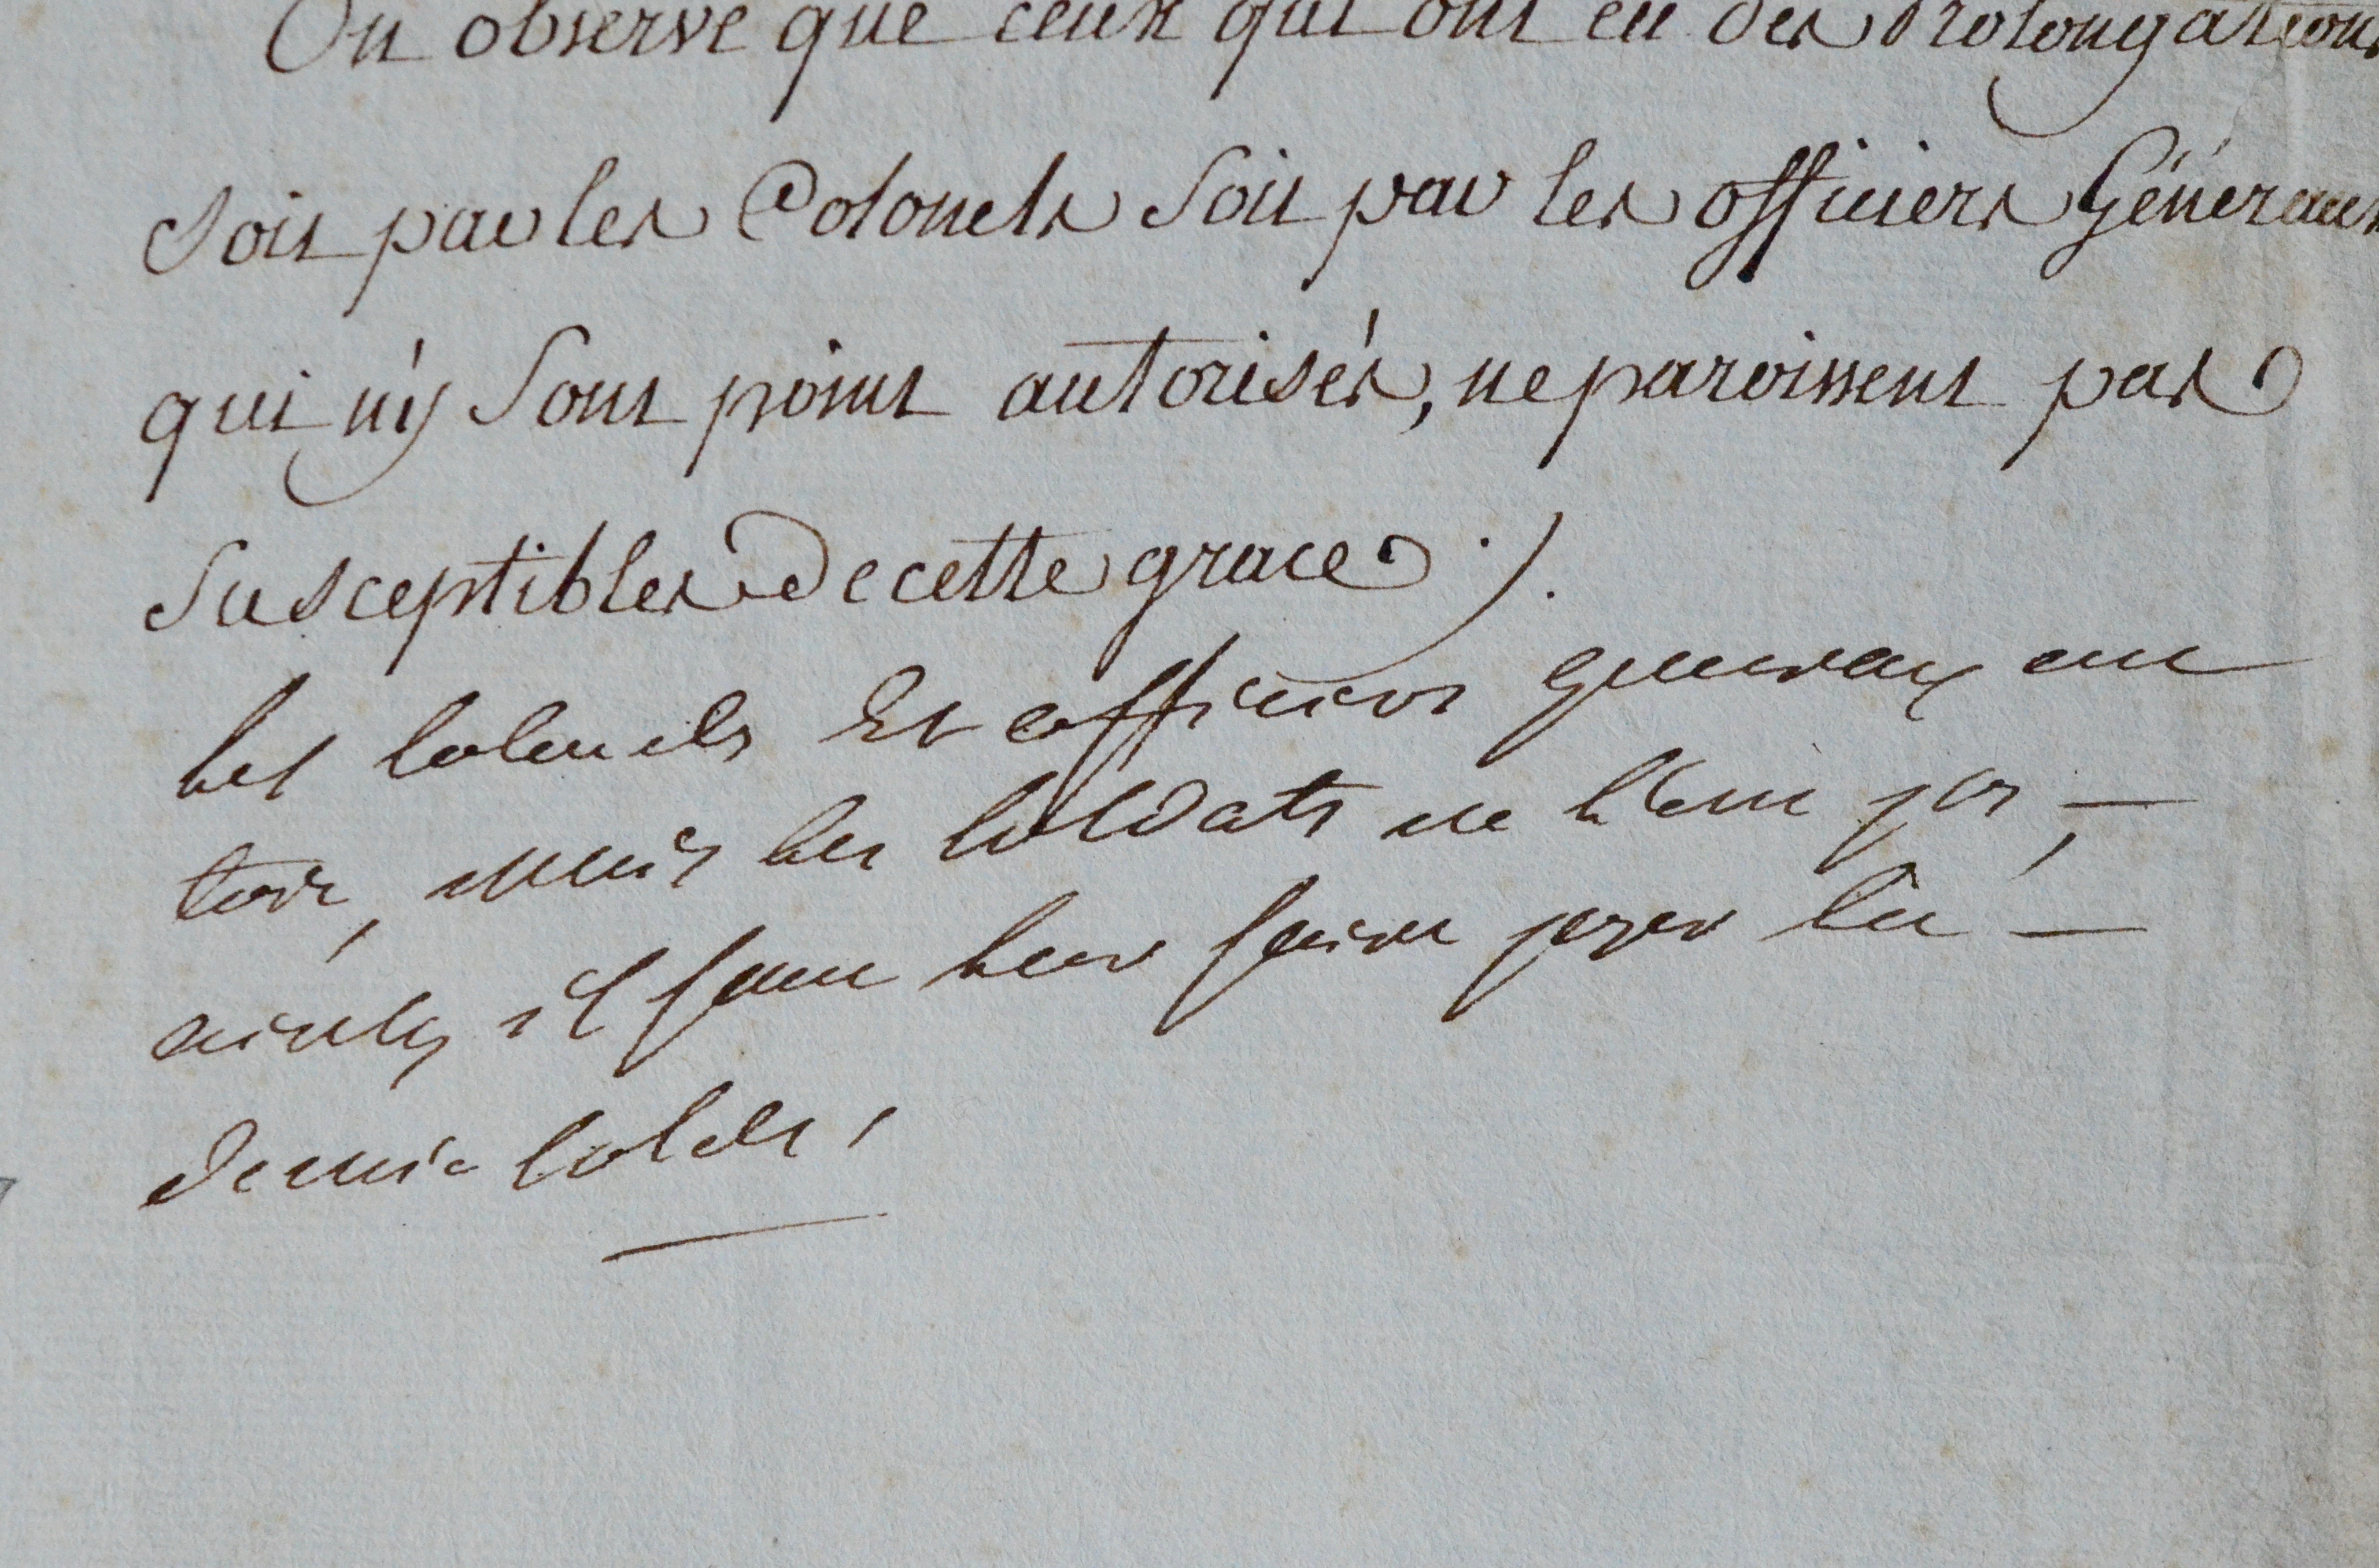 On observe que ceux qui ont eu des Prolongations
soit par les Colonels soit par les officiers Généraux
qui n'y sont point autorisés, ne paroissent pas
susceptibles de cette grace ./.
les colonels et officiers generaux ont
tort, mais les soldats ne l'ont pas,
ainsy il faut leur faire payer la
demie solde,